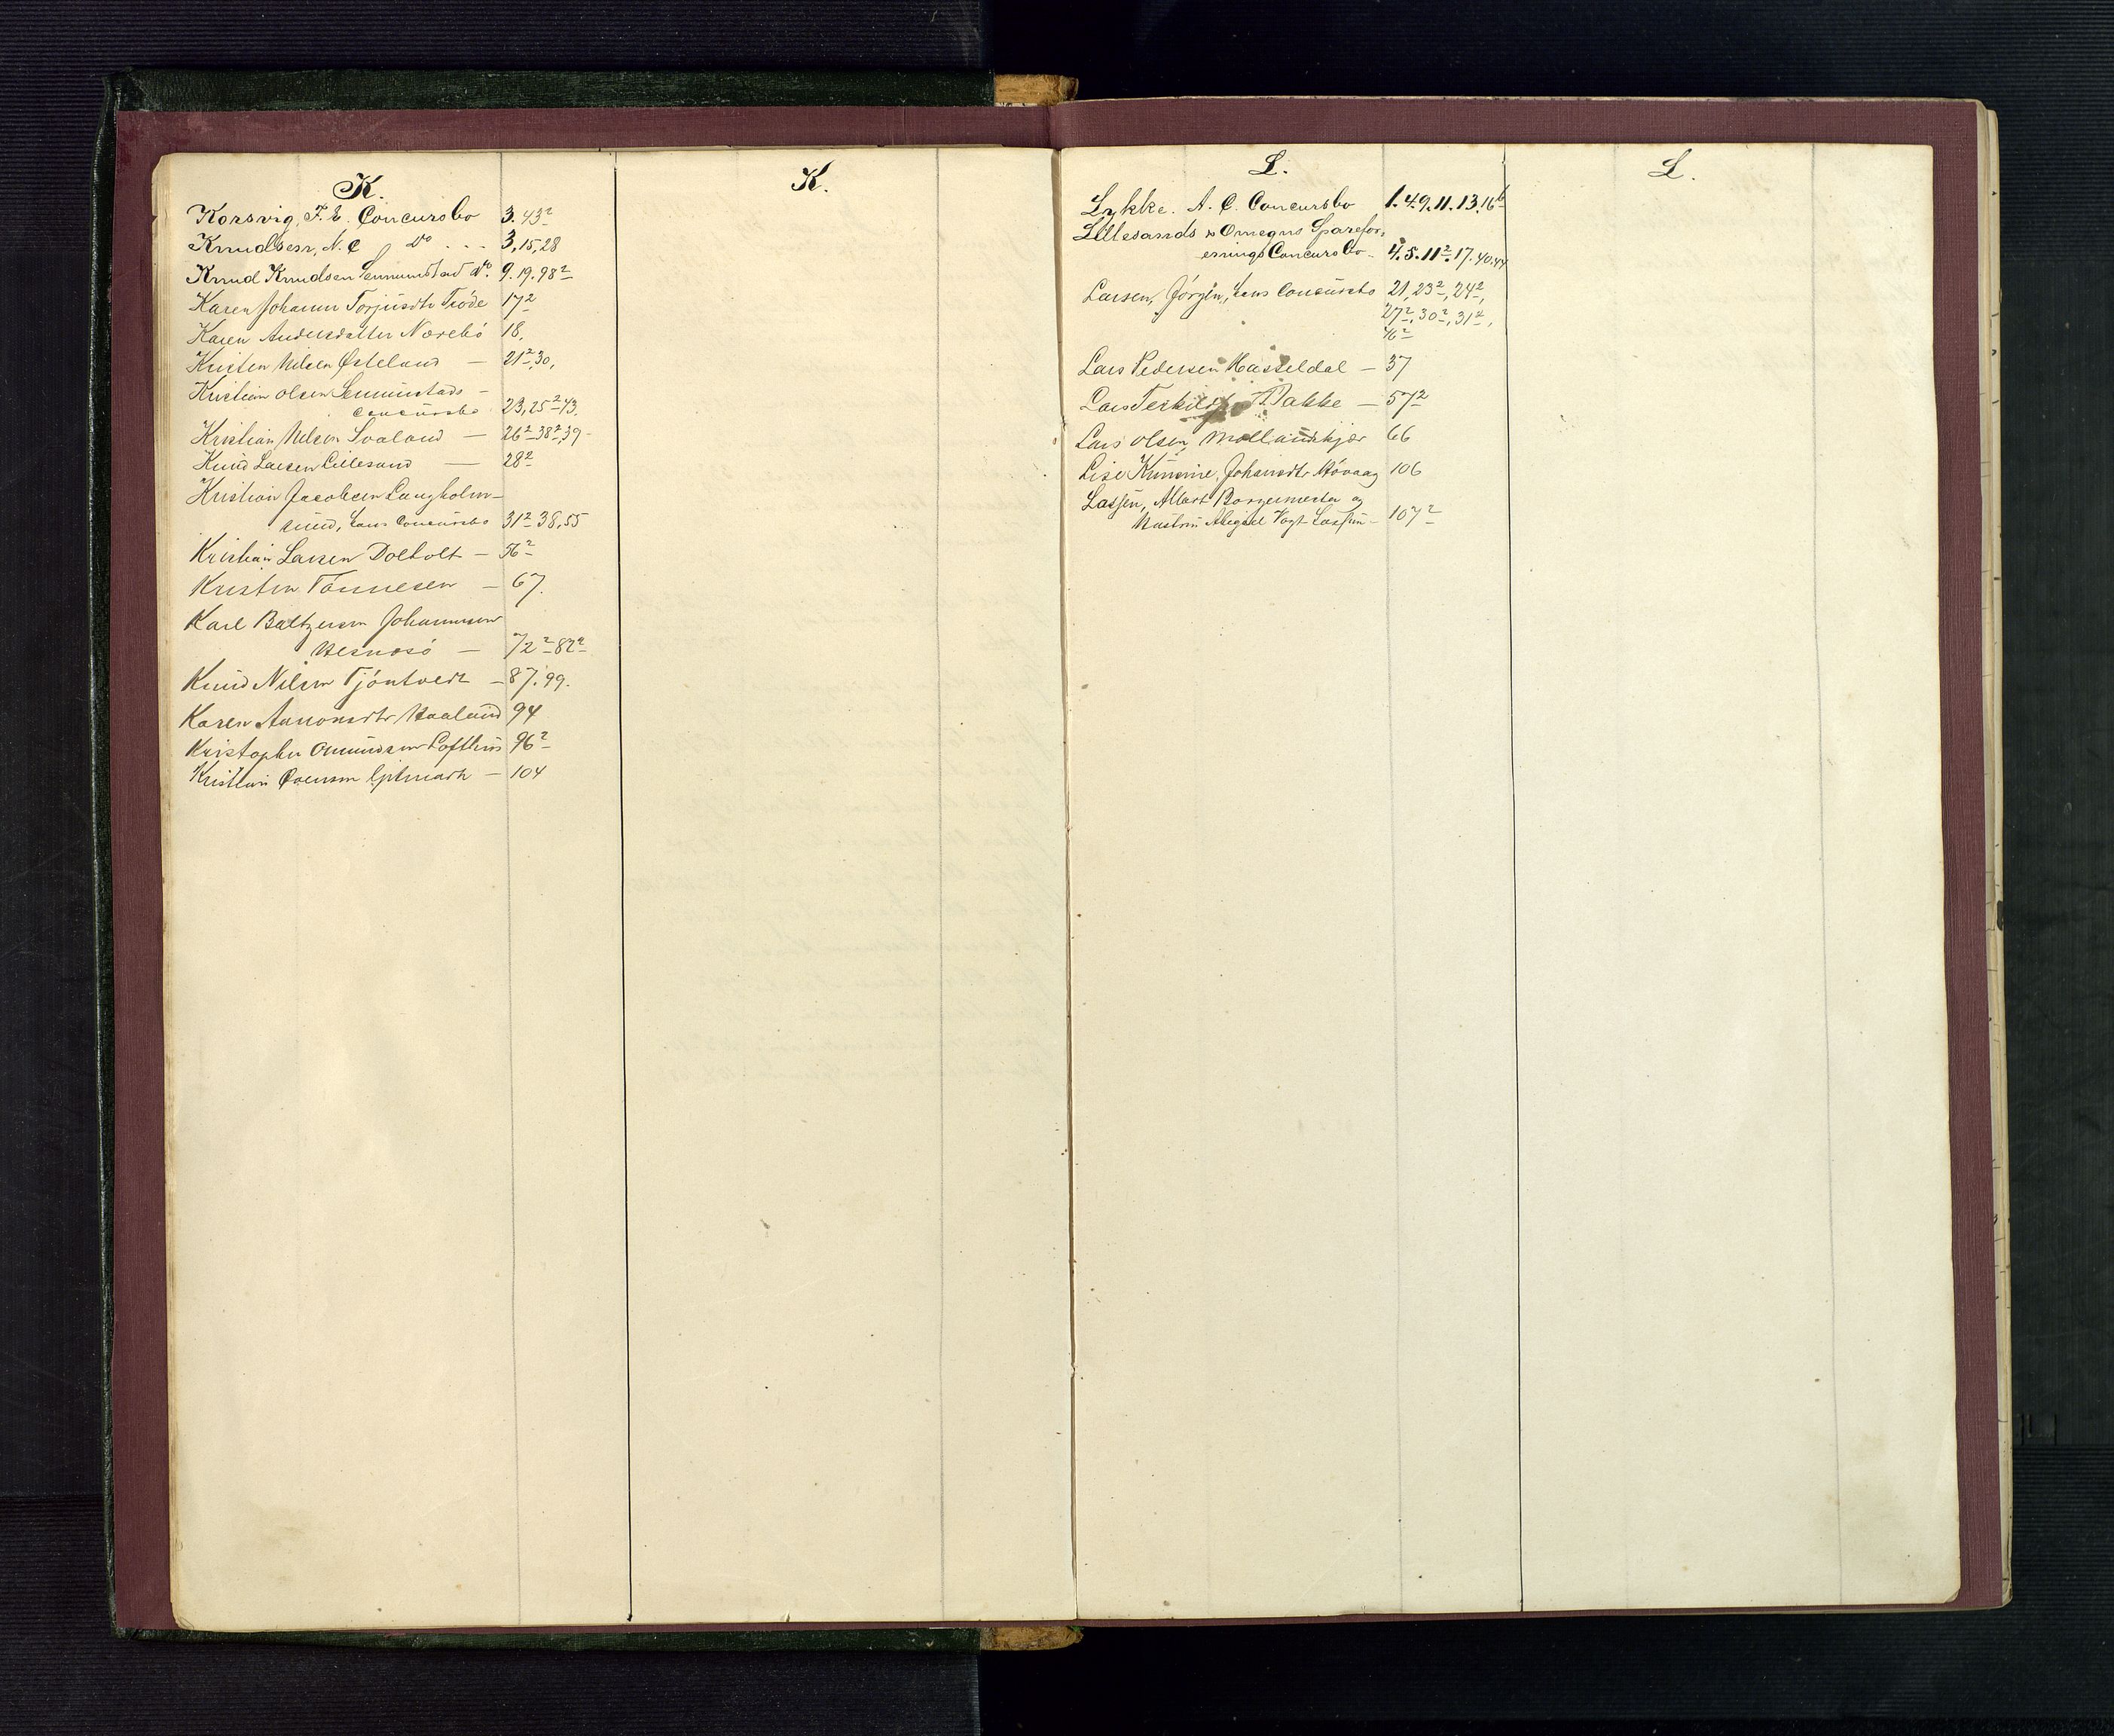 K.
Korsvig, F. E. Concursbo 3. 43²
Knudsen, N. C. Do ... 3, 15, 28
Knud Knudsen Sennumstad do. 9. 19. 98²
Karen Johanne Torjusdtr Trøde 17²
Karen Andersdatter Nørebö 18.
Kristen Nilsen Østeland — 21², 30,
Kristian Olsen Sennumstads –
Concursbo 23, 25² 43.
Kristian Nilsen Svaland — 26² 38², 39 –
Knud Larsen Lillesand — 28²
Kristian Jacobsen Langholm–
sund, hans Concursbo 31² 38, 55
Kristian Larsen Dolholt — 56²
Kristen Tönnesen — 67.
Karl Baltzersen Johannesen
Hesnesö — 72² 82²
Knud Nilsen Tjöntvedt — 87. 99.
Karen Aanonsdtr Haaland 94
Kristopher Omundsen Lofthus 96²
Kristian Evensen — 104
K.
L.
Lykke. A. C. Concursbo 1. 4. 9. 11. 13. 16
Lillesands & Omegns Sparefor=
enings Concursbo – 4. 5. 11². 17. 40. 44
Larsen, Jörgen, hans Concursbo 21, 23², 24²,
27², 30², 31²,
46²
Lars Pedersen Hasseldal — 37
Lars Terkildsen Bakke — 57²
Lars Olsen Mollandskjær 66
Lise Johansdtr Hövaag 106
Lassen, Albert Borgermester og
Hustru Abigael Vogt Lassen – 107²
L.